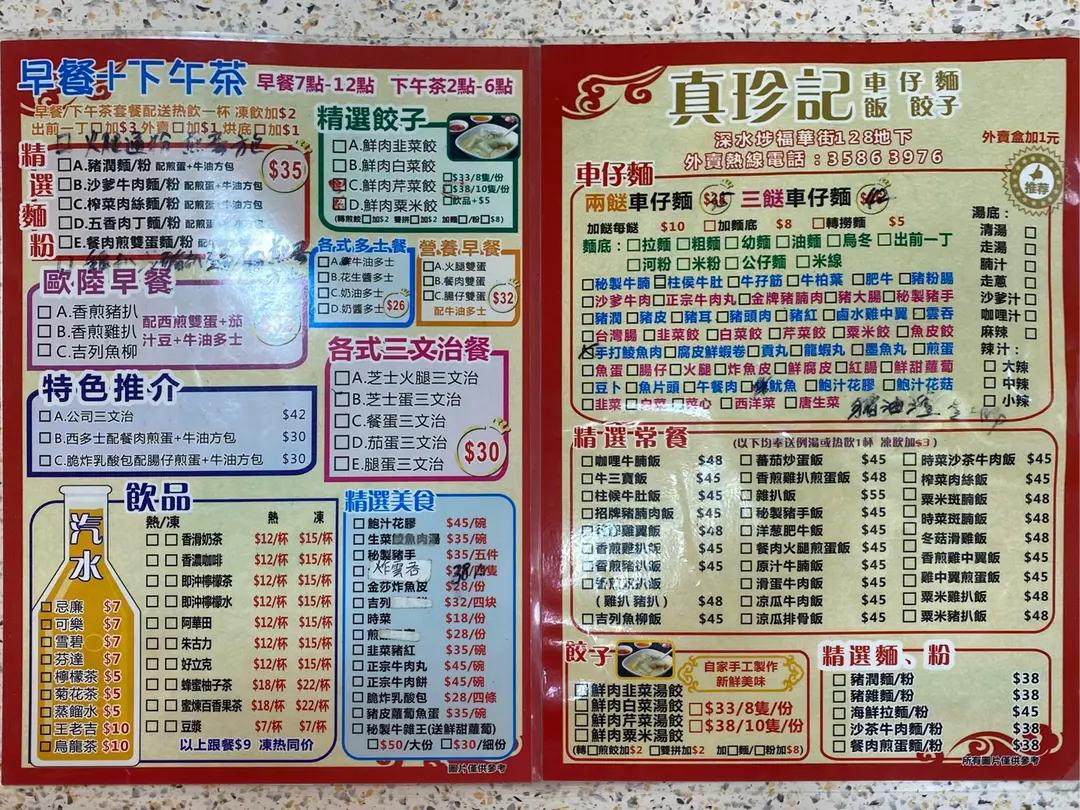 早餐+下午茶 早餐7點-12點 下午茶2點-6點
早餐/下午茶套餐配送热飲一杯 凍飲加$2
出前一丁□加$3 外賣□加$1 烘底□加$1
精選麵粉
$35
□A.豬潤麵/粉 配煎蛋+牛油方包
□B.沙爹牛肉麵/粉 配煎蛋+牛油方包
□C.榨菜肉絲麵/粉 配煎蛋+牛油方包
□D.五香肉丁麵/粉 配煎蛋
□E.餐肉煎雙蛋麵/粉
精選餃子
□A.鮮肉韭菜餃
□B.鮮肉白菜餃
C.鮮肉芹菜餃
D.鮮肉粟米餃
□$33/8隻/份
□$38/10隻/份
□飲品+$5
(轉煎餃□加$2 雙拼□加$2 加麵□/粉□$8)
歐陸早餐
□A.香煎豬扒
□B.香煎雞扒
□C.吉列魚柳
配西煎雙蛋+茄
汁豆+牛油多士
各式多士餐
牛油多士
□B.花生醬多士
□C.奶油多士
□D.奶醬多士
$26
營養早餐
□A.火腿雙蛋
□B.餐肉雙蛋
□C.腸仔雙蛋
配牛油多士
$32
特色推介
□A.公司三文治 $42
□B.西多士配餐肉煎蛋+牛油方包 $30
□C.脆炸乳酸包配腸仔煎蛋+牛油方包 $30
各式三文治餐
□A.芝士火腿三文治
□B.芝士蛋三文治
□C.餐蛋三文治
□D.茄蛋三文治
□E.腿蛋三文治
$30
汽水
□忌廉 $7
□可樂 $7
□雪碧 $7
□芬達 $7
□檸檬茶 $5
□菊花茶 $5
□蒸餾水 $5
□王老吉 $10
□烏龍茶 $10
飲品
熱/凍 熱 凍
□□香滑奶茶 $12/杯 $15/杯
□□香濃咖啡 $12/杯 $15/杯
□□即沖檸檬茶 $12/杯 $15/杯
□□即沖檸檬水 $12/杯 $15/杯
□□阿華田 $12/杯 $15/杯
□□朱古力 $12/杯 $15/杯
□□好立克 $12/杯 $15/杯
□□蜂蜜柚子茶 $18/杯 $22/杯
□□蜜煉百香果茶 $18/杯 $22/杯
□□豆漿 $7/杯 $7/杯
以上跟餐$9 凍热同价
精選美食
□鮑汁花膠 $45/碗
□生菜鯪魚肉湯 $35/碗
□秘製豬手 $35/五件
□炸雲吞 38
□金莎炸魚皮 $28/份
□吉列 $32/四块
□時菜 $18/份
□煎 $28/份
□韭菜豬紅 $35/碗
□正宗牛肉丸 $45/碗
□正宗牛肉餅 $45/碗
□脆炸乳酸包 $28/四條
□豬皮蘿蔔魚蛋 $35/碗
□秘製牛雜王(送鮮甜蘿蔔)
□$50/大份 □$30/細份
圖片僅供參考
真珍記 車仔麵
飯 餃子
深水埗福華街128地下
外賣熱線電話：3586 3976
外賣盒加1元
推荐
車仔麵
兩餸車仔麵 三餸車仔麵 42
加餸每餸 $10 □加麵底 $8 □轉撈麵 $5
麵底：□拉麵 □粗麵 □幼麵 □油麵 □烏冬 □出前一丁
□河粉 □米粉 □公仔麵 □米線
□秘製牛腩□柱侯牛肚□牛孖筋 □牛柏葉 □肥牛 □豬粉腸
□沙爹牛肉□正宗牛肉丸□金牌豬腩肉□豬大腸□秘製豬手
□豬潤 □豬皮 □豬耳 □豬頭肉 □豬紅 □鹵水雞中翼 □雲吞
□台灣腸 □韭菜餃 □白菜餃 □芹菜餃 □粟米餃 □魚皮餃
手打鯪魚肉□腐皮鮮蝦卷□貢丸□龍蝦丸 □墨魚丸 □煎蛋
□魚蛋□腸仔□火腿 □炸魚皮 □鮮腐皮 □紅腸□鮮甜蘿蔔
□豆卜 □魚片頭 □午餐肉 魷魚 □鮑汁花膠 □鮑汁花菇
□韭菜 □白菜 □菜心 □西洋菜 □唐生菜
湯底：
清湯 □
走湯 □
腩汁 □
走蔥 □
沙爹汁□
咖喱汁□
麻辣 □
辣汁：
□大辣
□中辣
□小辣
精選常餐 (以下均奉送例湯或热飲1杯 凍飲加$3)
□咖喱牛腩飯 $48
□牛三寶飯 $45
□柱候牛肚飯 $45
□招牌豬腩肉飯 $45
雞翼飯 $48
香煎雞扒飯 $45
□香煎豬扒飯 $45
(雞扒 豬扒) $48
□吉列魚柳飯 $45
□蕃茄炒蛋飯 $45
□香煎雞扒煎蛋飯 $48
□雜扒飯 $55
□秘製豬手飯 $45
□洋葱肥牛飯 $45
□餐肉火腿煎蛋飯 $45
□原汁牛腩飯 $45
□滑蛋牛肉飯 $45
□凉瓜牛肉飯 $45
□凉瓜排骨飯 $45
□時菜沙茶牛肉飯 $45
□榨菜肉絲飯 $45
□粟米斑腩飯 $48
□時菜斑腩飯 $48
□冬菇滑雞飯 $48
□香煎雞中翼飯 $45
□雞中翼煎蛋飯 $45
□粟米雞扒飯 $48
□粟米豬扒飯 $48
餃子
自家手工製作
新鮮美味
□鮮肉韭菜湯餃
□鮮肉白菜湯餃
□鮮肉芹菜湯餃
□鮮肉粟米湯餃
□$33/8隻/份
□$38/10隻/份
(轉□煎餃加$2 □雙拼加$2 加□麵/□粉加$8)
精選麵、粉
□豬潤麵/粉 $38
□豬雜麵/粉 $38
□海鮮拉麵/粉 $45
□沙茶牛肉麵/粉 $38
□餐肉煎蛋麵/粉 $38
所有圖片僅供參考